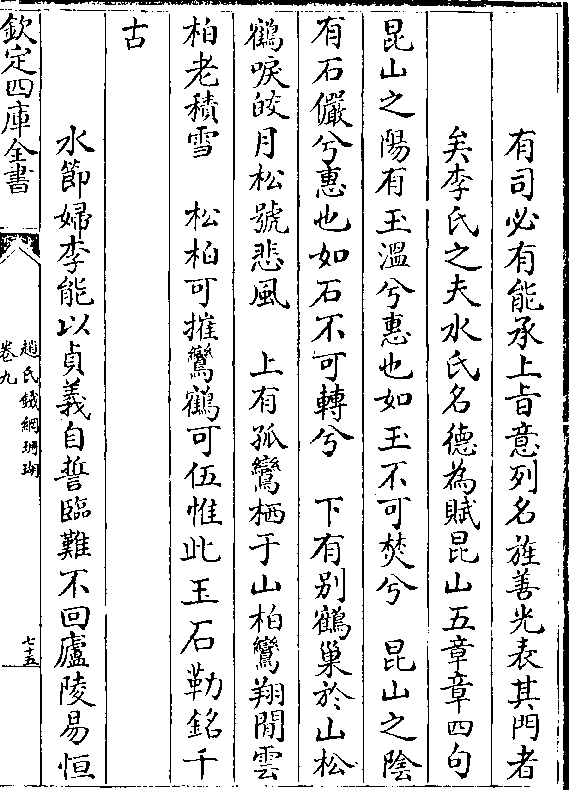 有司必有能承上旨意列名旌善光表其門者
矣李氏之夫水氏名德為賦昆山五章章四句
昆山之陽有玉溫兮惠也如玉不可焚兮　昆山之陰
有石儼兮惠也如石不可轉兮　下有别鶴巢於山松
鶴唳皎月松號悲風　上有孤鸞栖于山柏鸞翔閒雲
柏老積雪　松柏可摧鸞鶴可伍惟此玉石勒銘千
古
水節婦李能以貞義自誓臨難不回廬陵易恒
欽定四庫全書
趙氏鐵網珊瑚
卷九
七十五